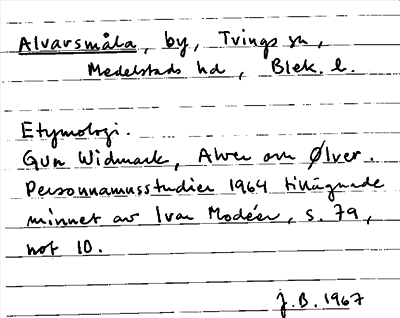 Alvarsmåla, by, Tvings sn,
Medelstads hd, Blek. l.
Etymologi.
Gun Widmark, Alver om Ølver.
Personnamnsstudier 1964 tillägnade
minnet av Ivar Modéer, s. 79,
not 10.
J.B. 1967